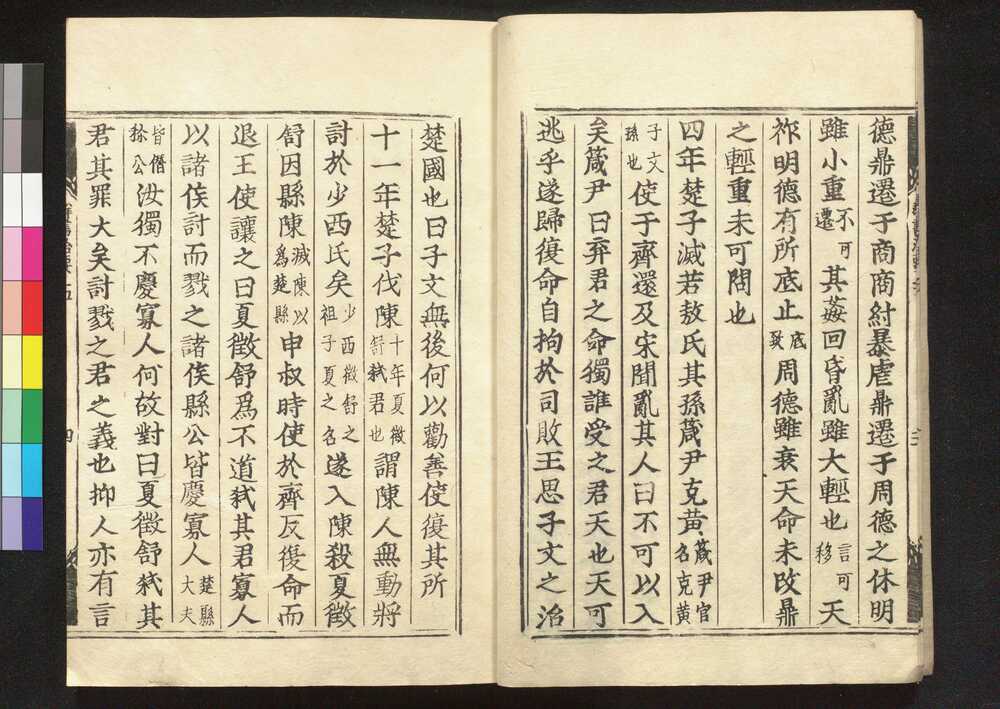 德鼎遷于商商紂暴虐鼎遷于周德之休明
雖小重不可遷其姦回昏亂雖大輕也言可移天
祚明德有所底止底致周德雖衰天命未改鼎
之輕重未可問也
四年楚子滅若敖氏其孫葴尹克黃葴尹官名克黃
子文孫也使于齊還及宋聞亂其人曰不可以入
矣葴尹曰弃君之命獨誰受之君天也天可
逃乎遂歸復命自拘於司敗王思子文之治
楚國也曰子文無後何以勸善使復其所
十一年楚子伐陳十年夏徵舒弒君也謂陳人無動將
討於少西氏矣少西徵舒之祖子夏之名遂入陳殺夏徵
舒因縣陳滅陳以爲楚縣申叔時使於齊反復命而
退王使讓之曰夏徵舒爲不道弒其君寡人
以諸侯討而戮之諸侯縣公皆慶寡人楚縣大夫
皆僭稱公汝獨不慶寡人何故對曰夏徵舒弒其
君其罪大矣討戮之君之義也抑人亦有言
四